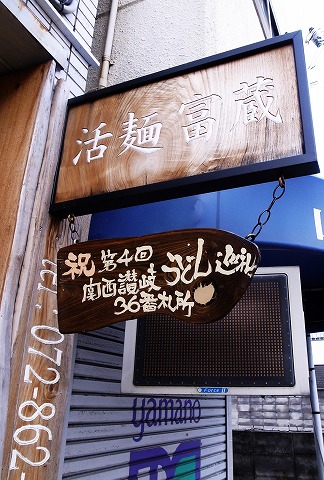 活麺 富蔵
祝 第4回
関西讃岐うどん巡礼
36番札所
Tel. 072-862-
yamano